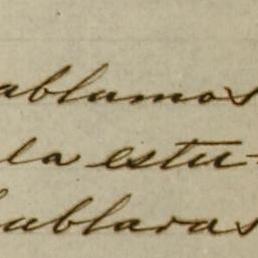 ablamos
la estu-
hablaras